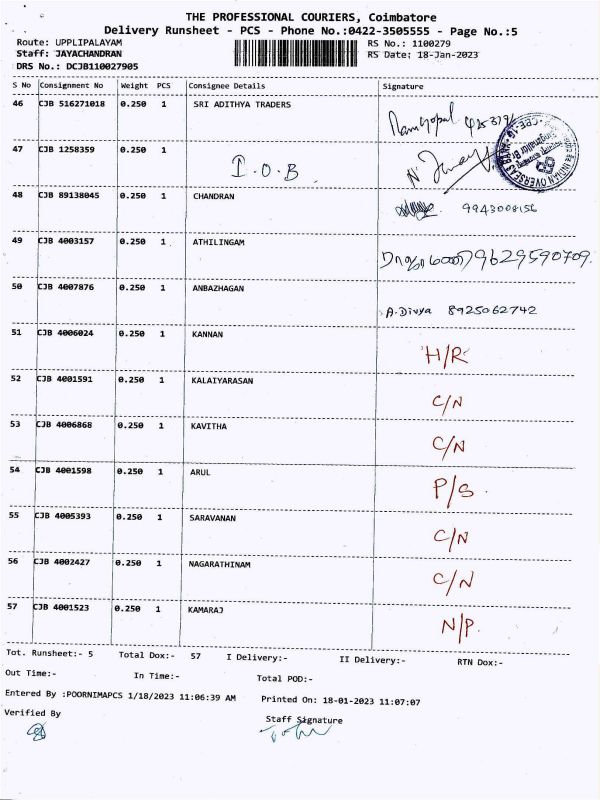 THE PROFESSIONAL COURIERS, Coimbatore
Delivery Runsheet - PCS - Phone No.:0422-3505555 - Page No.:5
Route: UPPLIPALAYAM RS No.: 1100279
Staff: JAYACHANDRAN RS Date: 18-Jan-2023
DRS No.: DCJB110027905
S No Consignment No Weight PCS Consignee Details Signature
46 CJB 516271018 0.250 1 SRI ADITHYA TRADERS
47 CJB 1258359 0.250 1 I.O.B
INDIAN OVERSEAS
48 CJB 89138045 0.250 1 CHANDRAN 9943008156
49 CJB 4003157 0.250 1 ATHILINGAM 9629590709.
50 CJB 4007876 0.250 1 ANBAZHAGAN A.Divya 8925062742
51 CJB 4006024 0.250 1 KANNAN H/R
52 CJB 4001591 0.250 1 KALAIYARASAN C/N
53 CJB 4006868 0.250 1 KAVITHA C/N
54 CJB 4001598 0.250 1 ARUL P/S.
55 CJB 4005393 0.250 1 SARAVANAN C/N
56 CJB 4002427 0.250 1 NAGARATHINAM C/N
57 CJB 4001523 0.250 1 KAMARAJ N/P.
Tot. Runsheet:- 5 Total Dox:- 57 I Delivery:- II Delivery:- RTN Dox:-
Out Time:- In Time:- Total POD:-
Entered By :POORNIMAPCS 1/18/2023 11:06:39 AM Printed On: 18-01-2023 11:07:07
Verified By Staff Signature